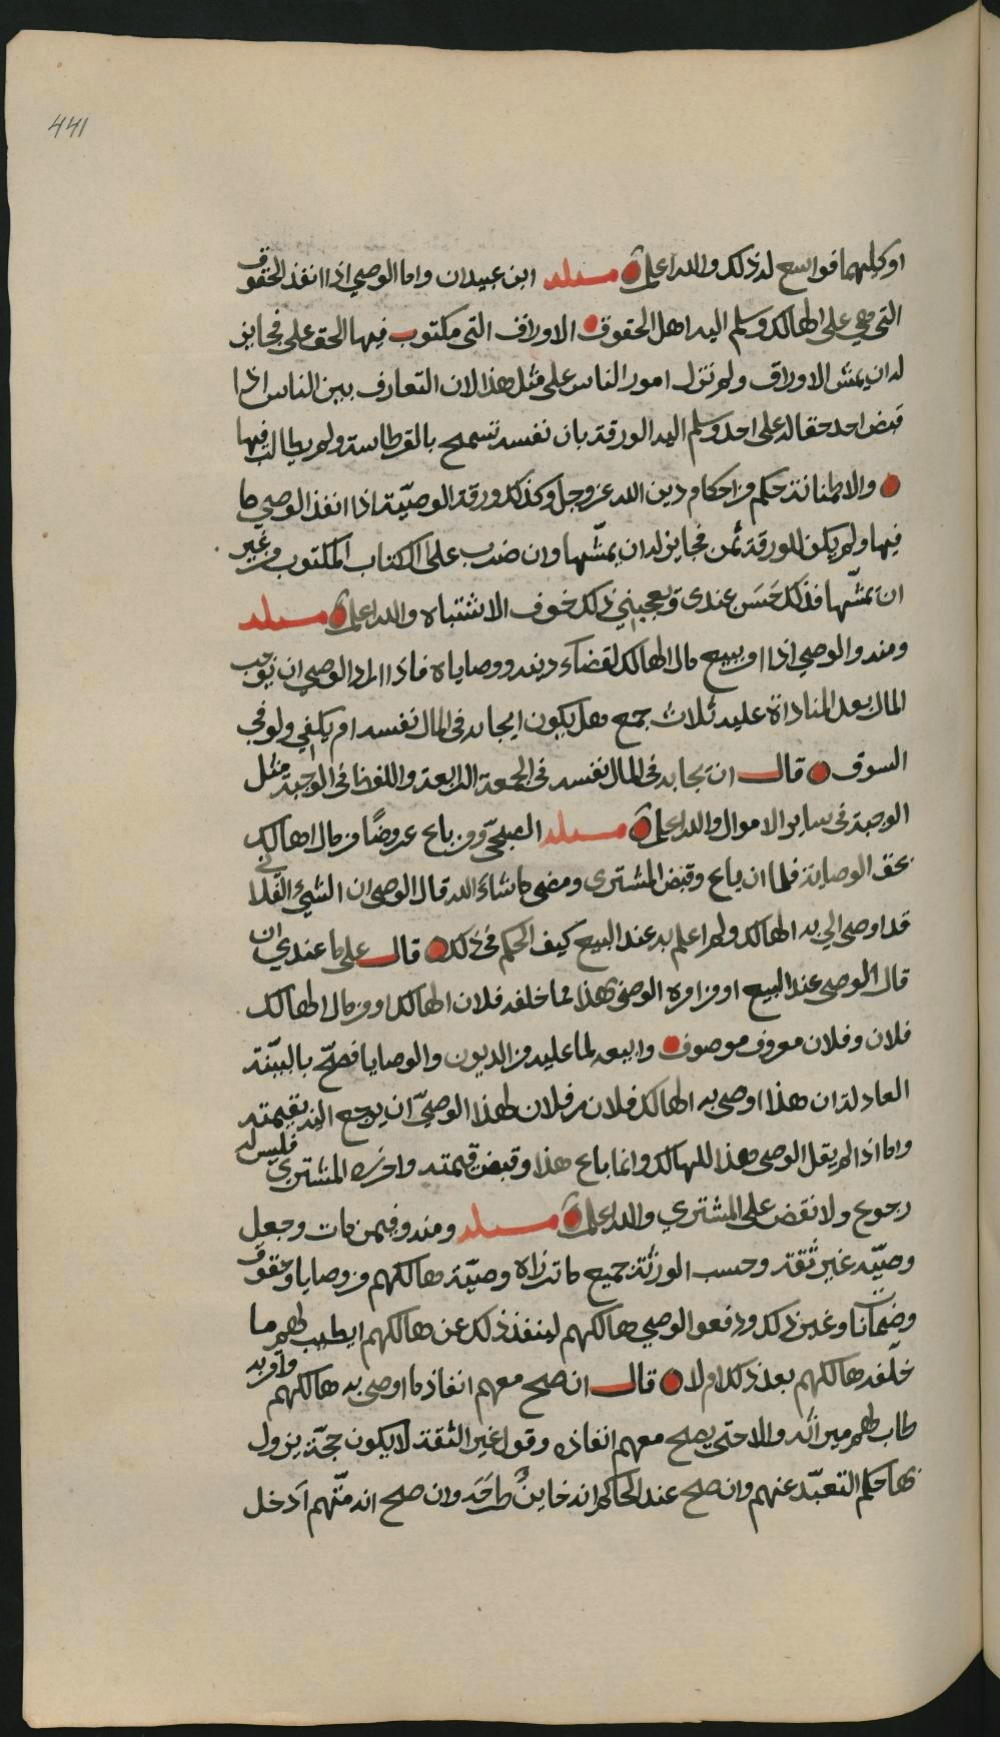 441
او كلهما فواسع له ذلك والله اعلم مسئله ابن عبيدان واما الوصي اذا انفذ الحقوق
التي هي على الهالك وسلم اليه اهل الحقوق الاوراق التي مكتوب فيها الحق على فجايز
له ان يمش الاوراق ولم تزل امور الناس على مثل هذا لان التعارف بين الناس اذا
قبض احد حقا له على احد وسلم اليه الورقة بان نفسه تسمح بالقرطاسة ولم يطالب فيها
والاطمنانة حكم من احكام دين الله عز وجل وكذلك ورقة الوصيّة اذا انفذ الوصي ما
فيها ولم يكن للورقة ثمن فجايز له ان يمشّها وان ضرب على الكتاب المكتوب من غير
ان يمشّها فذلك حَسَن عندى ويعجبني ذلك خوف الاشتباه والله اعلم مسئله
ومنه والوصي اذا اراد بيع مال الهالك لقضاء دينه ووصاياه فاذا اراد الوصي ان يوجب
المال بعد المناداة عليه ثلاث جمع هل يكون ايجابه فى المال نفسه ام يكفي ولو في
السوق قال ان ايجابه فى المال نفسه فى الجمعة الرابعة واللفظ فى الوجبة مثل
الوجبة فى ساير الاموال والله اعلم مسئله الصبحي ومن باع عروضًا من مال الهالك
بحق الوصاية فلما ان باع وقبض المشترى ومضى ما شاء الله قال الوصى ان الشيء الفلاني
قد اوصى الي به الهالك ولم اعلم به عند البيع كيف الحكم فى ذلك قال على ما عندي ان
قال الوصى عند البيع او من امره الوصى هذا مما خلفه فلان الهالك او من مال الهالك
فلان وفلان معروف موصوف وابيعه لما عليه من الديون والوصايا فصحّ بالبيّنة
العادلة ان هذا اوصى به الهالك فلان بن فلان لهذا الوصيّ ان يرجع اليه بقيمته
واما اذا لم يقل الوصى هذا للهالك وانما باع هذا وقبض قيمته واحرزه المشترى فليس له
رجوع ولا نقض على المشتري والله اعلم مسئله ومنه وفيمن مات وجعل
وصيّه غير ثقة وحسب الورثة جميع ما تركه وصيّة هالكهم من وصايا وحقوق
وضمانات وغير ذلك ودفعوا الوصي هالكهم لينفذ ذلك عن هالكهم ايطيب لهم ما
خلّفه هالكهم بعد ذلك ام لا قال ان صح معهم انفاذ ما اوصى به هالكهم واقر به
طاب لهم ميراثه والا حتى يصح معهم انفاذه وقول غير الثقة لا يكون حجّة يزول
بها حكم التعبّد عنهم وان صح عند الحاكم انه خاينٌ طرحه وان صح انه متّهم اَدخل